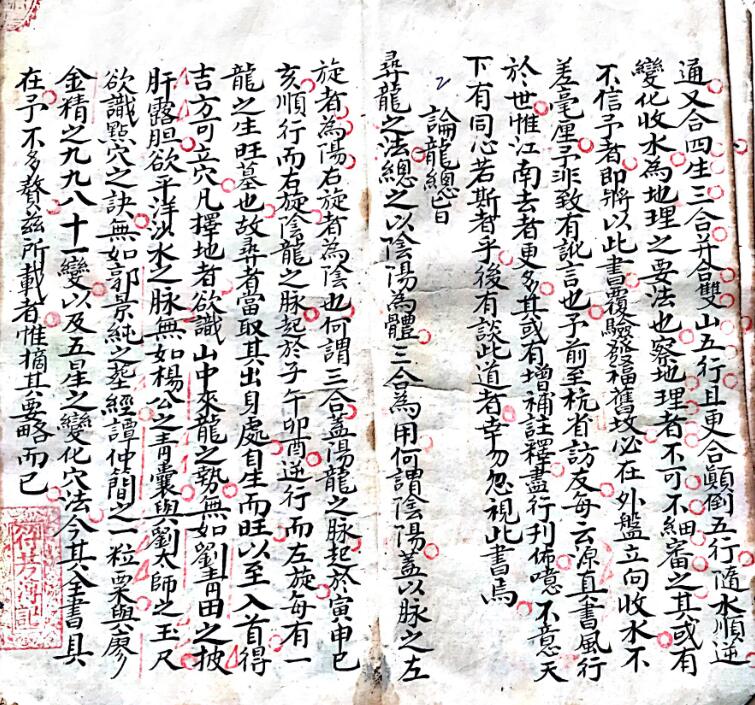 通又合四生三合并合雙山五行且更合顛倒五行隨水順逆
變化收水為地理之要法也察地理者不可不細審之其或有
不信予者即將以此書覆驗發福舊坟必在外盤立向收水不
差毫厘予非致有訛言也予前至杭省訪友每云源真書風行
於世惟江南去者更多其或有增補註釋盡行刊佈噫不意天
下有同心若斯者乎後有談此道者幸勿忽視此書焉
論龍總旨
尋龍之法總之以陰陽為體三合為用何謂陰陽蓋以脉之左
旋者為陽右旋者為陰也何謂三合蓋陽龍之脉起於寅申巳
亥順行而右旋陰龍之脉起於子午卯酉逆行而左旋每有一
龍之生旺墓也故尋者當取其出身處自生而旺以至入首得
吉方可立穴凡擇地者欲識山中來龍之勢無如劉青田之披
肝露胆欲乎洋沙水之脉無如楊公之青囊與劉太師之玉尺
欲識點穴之訣無如郭景純之塟經譚仲簡之一粒粟與廖
金精之九九八十一變以及五星之變化穴法今其全書具
在予不多贅茲所載者惟摘其要略而已